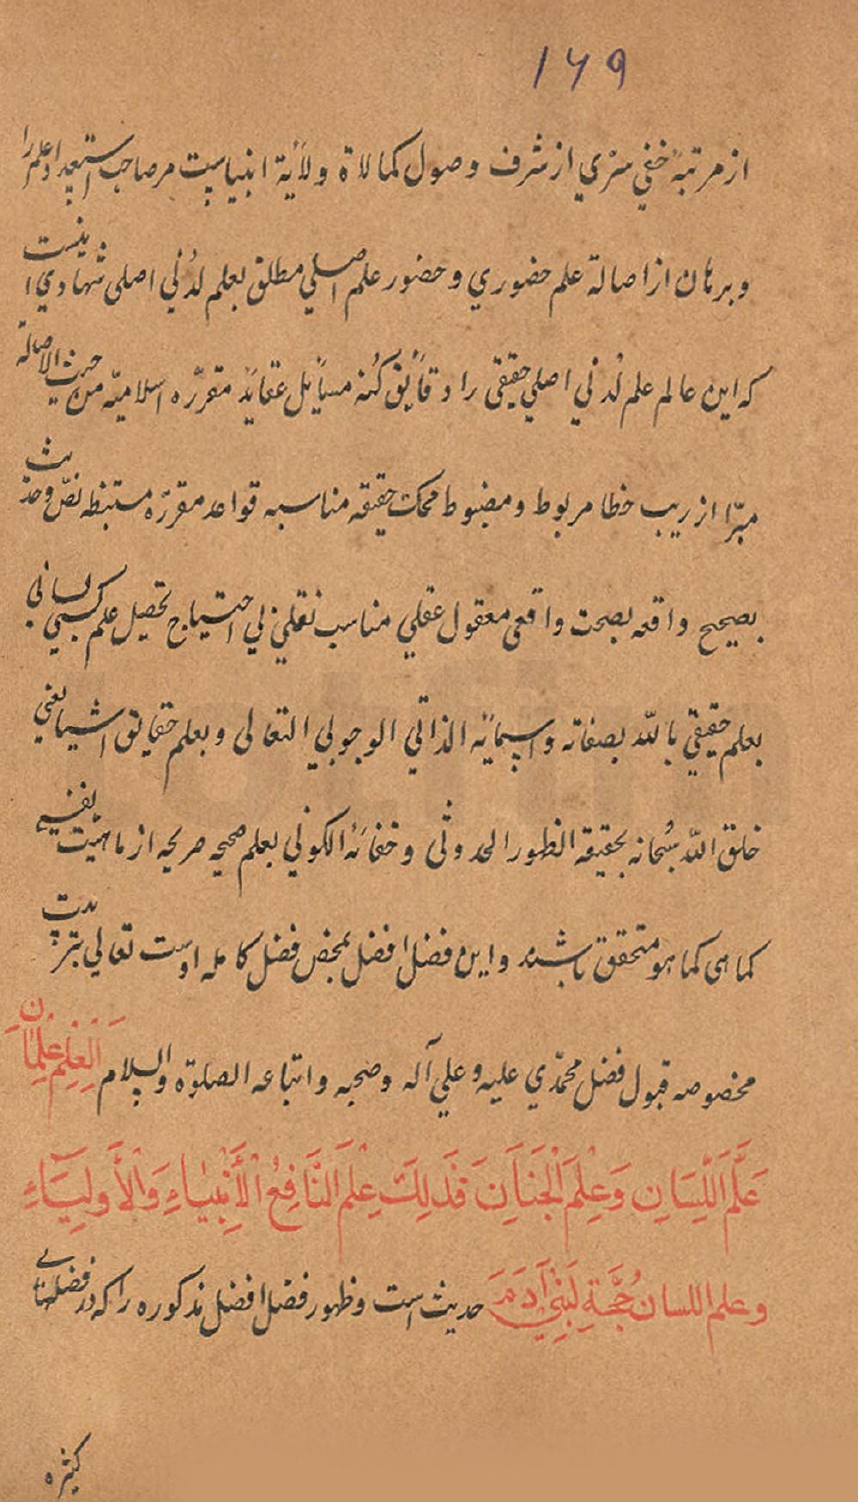 ۱۶۹
از مرتبهٔ خفی سرّی از شرف وصول کمالاة ولایة انبیاست مر صاحب استعداد علم را
و برهان از اصالة علم حضوری و حضور علم اصلی مطلق بعلم لدُنی اصلی شهادی اینست
که این عالم علم لُدنی اصلی حقیقی را دقایق کُنه مسایل عقاید مقررّه اسلامیّه من حیث الاصالة
مبرّا از ریب خطا مربوط و مضبوط محک حقیقه مناسبه قواعد مقرّره مستنبطه نصّ و حدیث
بصحیح واقعه بصحت واقعی معقول عقلی مناسب نقلی بی احتیاج تحصیل علم کسبی لسانی
بعلم حقیقی باللّه بصفاته و اسمائه الذاتی الوجوبی التعالی و بعلم حقایق اشیا یعنی
خلق اللّه سُبحانه بحقیقه الظهور الحدوثی و خفائه الکونی بعلم صحیحه صریحه از ماهیّت بنفسه
کما هی کما هو متحقق باشند و این فضل افضل بمحض فضل کامله اوست تعالی بتربیت
مخصوصه قبول فضل محمّدی علیه و علی آله و صحبه و اتباعه الصلوة والسلام اَلْعِلْمُ عِلْمَانِ
عَلَّمَ اللِّسَانِ وَعِلْمَ الْجَنَانِ فَذَلِكَ عِلْمَ النَّافِعُ الْأَنْبِيَاءِ وَالْأَولِيَاءِ
وعلم اللسان حُجَّةِ لِبَنِي آدَمَ حدیث است و ظهور فضل افضل مذکوره را که در فضلهای
کثیره